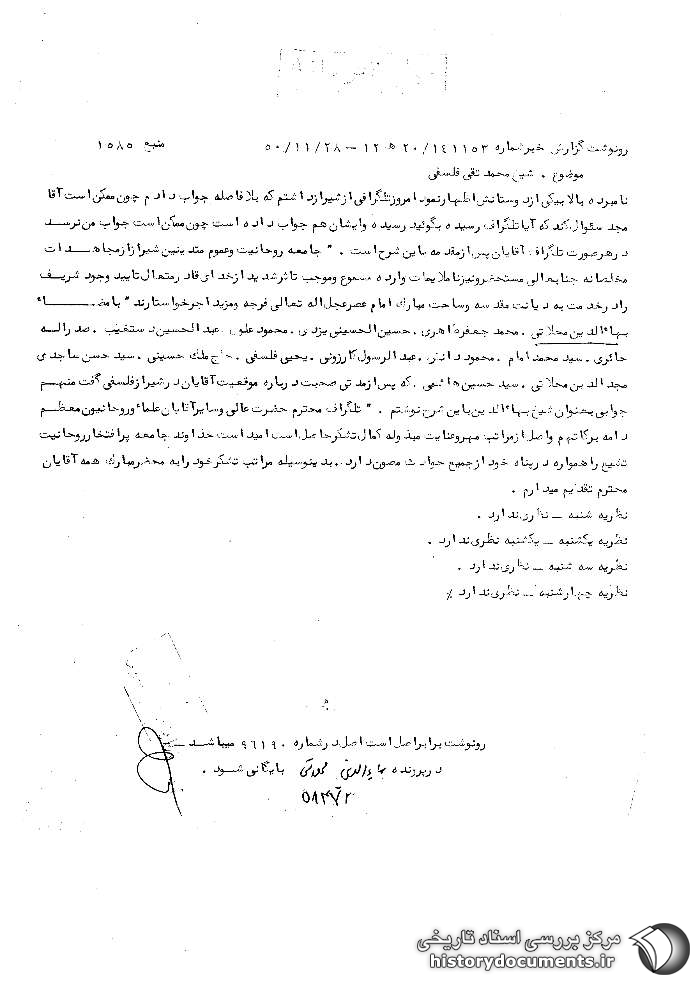 رونوشت گزارش خبر شماره ۲۰/۱۴۱۱۵۳ ه ۱۲ – ۵۰/۱۱/۲۸ منبع ۱۵۸۵
موضوع . شیخ محمد تقی فلسفی
نامبرده بالا بیکی از دوستانش اظهار نمود امروز تلگرافی از شیراز داشتم که بلافاصله جواب دادم چون ممکن است آقا
مجد سئوال کند که آیا تلگراف رسیده بگوئید رسیده و ایشان هم جواب داده است چون ممکن است جواب من نرسد
در هر صورت تلگراف آقایان پس از مقدمه باین شرح است . " جامعه روحانیت و عموم متدینین شیراز از مجاهدات
مخلصانه جنابعالی مستحضر و نیز ناملایمات وارده مسموع و موجب تاثر شدید از خدای قادر متعال تایید وجود شریف
را در خدمت به دیانت مقدسه و ساحت مبارک امام عصر عجل اله تعالی فرجه و مزید اجر خواستارند " بامضاء
بهاءالدین محلاتی . محمد جعفر طاهری . حسین الحسینی یزدی . محمود علوی . عبدالحسین دستغیب . صدراله
حائری . سید محمد امام . محمود . عبدالرسول کازرونی . یحیی فلسفی . حاج ملک حسینی . سید حسن ساجدی
مجدالدین محلاتی . سید حسین هاشمی . که پس از مدتی صحبت درباره موقعیت آقایان در شیراز فلسفی گفت منهم
جوابی بعنوان شیخ بهاءالدین باین شرح نوشتم . " تلگراف محترم حضرت عالی و سایر آقایان علماء و روحانیون معظم
دامه برکاتهم واصل از مراتب مهر و عنایت مبذوله کمال تشکر حاصل است امید است خداوند جامعه پرافتخار روحانیت
تشیع را همواره در پناه خود از جمیع حوادث مصون دارد . بدینوسیله مراتب تشکر خود را به محضر مبارک همه آقایان
محترم تقدیم میدارم .
نظریه شنبه – نظری ندارد .
نظریه یکشنبه – یکشنبه نظری ندارد .
نظریه سه شنبه – نظری ندارد .
نظریه چهارشنبه – نظری ندارد ٪
رونوشت برابر اصل است اصل در شماره ۹۶۱۹۰ میباشد –
در پرونده بهاءالدین محلاتی بایگانی شود .
مرکز بررسی اسناد تاریخی
historydocuments.ir